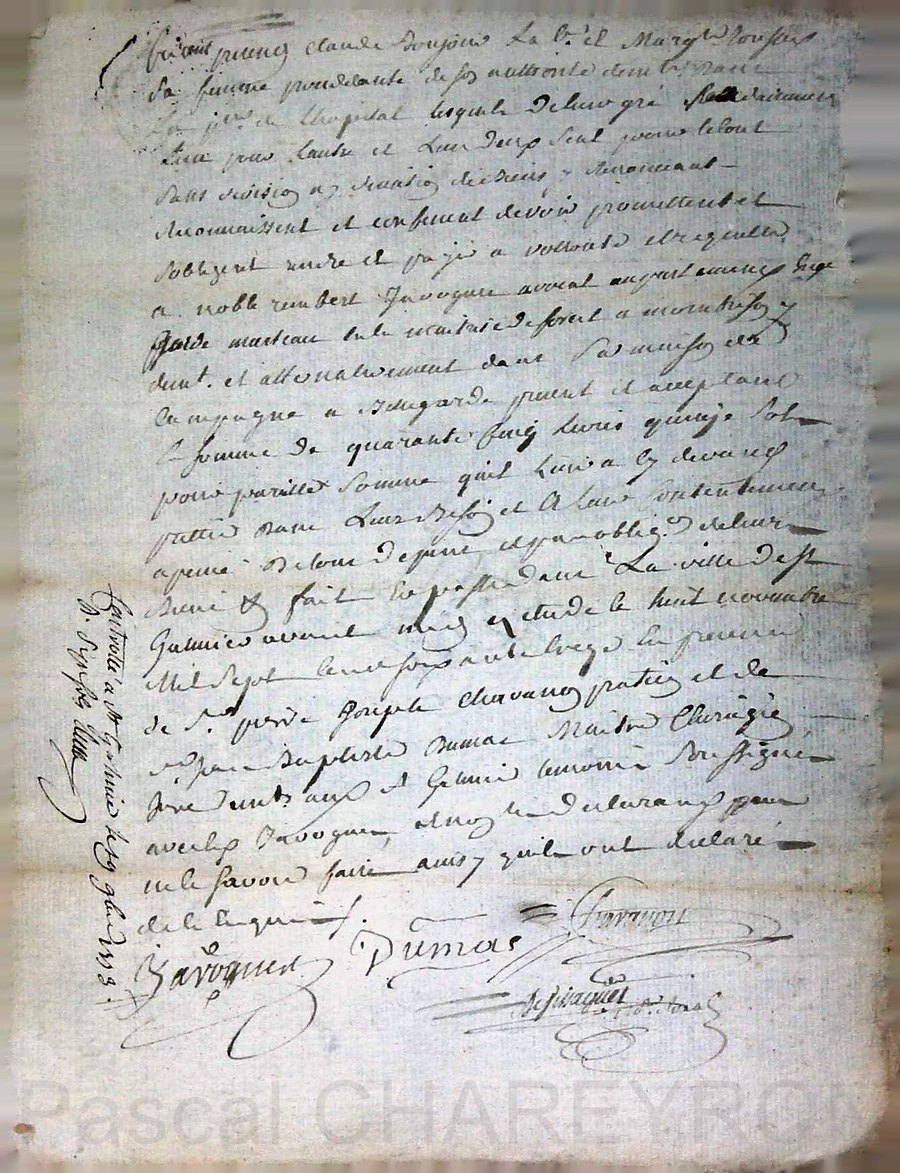 furent presents Claude Boujour lab.r et Marg.te
sa femme procedante de son authorité demeurant
en p.sse de l'hopital lesquels de leur gré
l'un pour l'autre et l'un deux seul pour le tout
sans division ny de biens y renonceant
reconnaissent et confessent devoir promettent et
s'obligent rendre et payer a volonté et requette
a noble rembert Javogues avocat en parlement
garde marteau en la maitrise des forets a montbrison y
demt. et alternativement dans sa maison de
campagne a Bellegarde present et acceptant
la somme de quarante cinq livres quinze sols
pour pareille somme quil leur a cy devant
prettée dans leur besoin et a leur contentement
a peine de tous depens et par oblig.on de leurs
biens fait et passé dans la ville de st
Galmier avant midy en etude le huit novembre
mil sept cent soixante treze en presence
de s.r pierre Joseph Chavanon praticien et de
s.r jean Baptiste Dumas Maitre Chirurgien
demts aud. st Galmier temoins soussignés
avec led. Javogues, et non les declarants pour
ne le savoir faire ainsy qu'ils ont declaré
de ce enquis
Javogues Dumas Chavanon
Desjaques
Controllé à St Galmier le 9bre 1773.
R. six sols
Pascal CHAREYRON